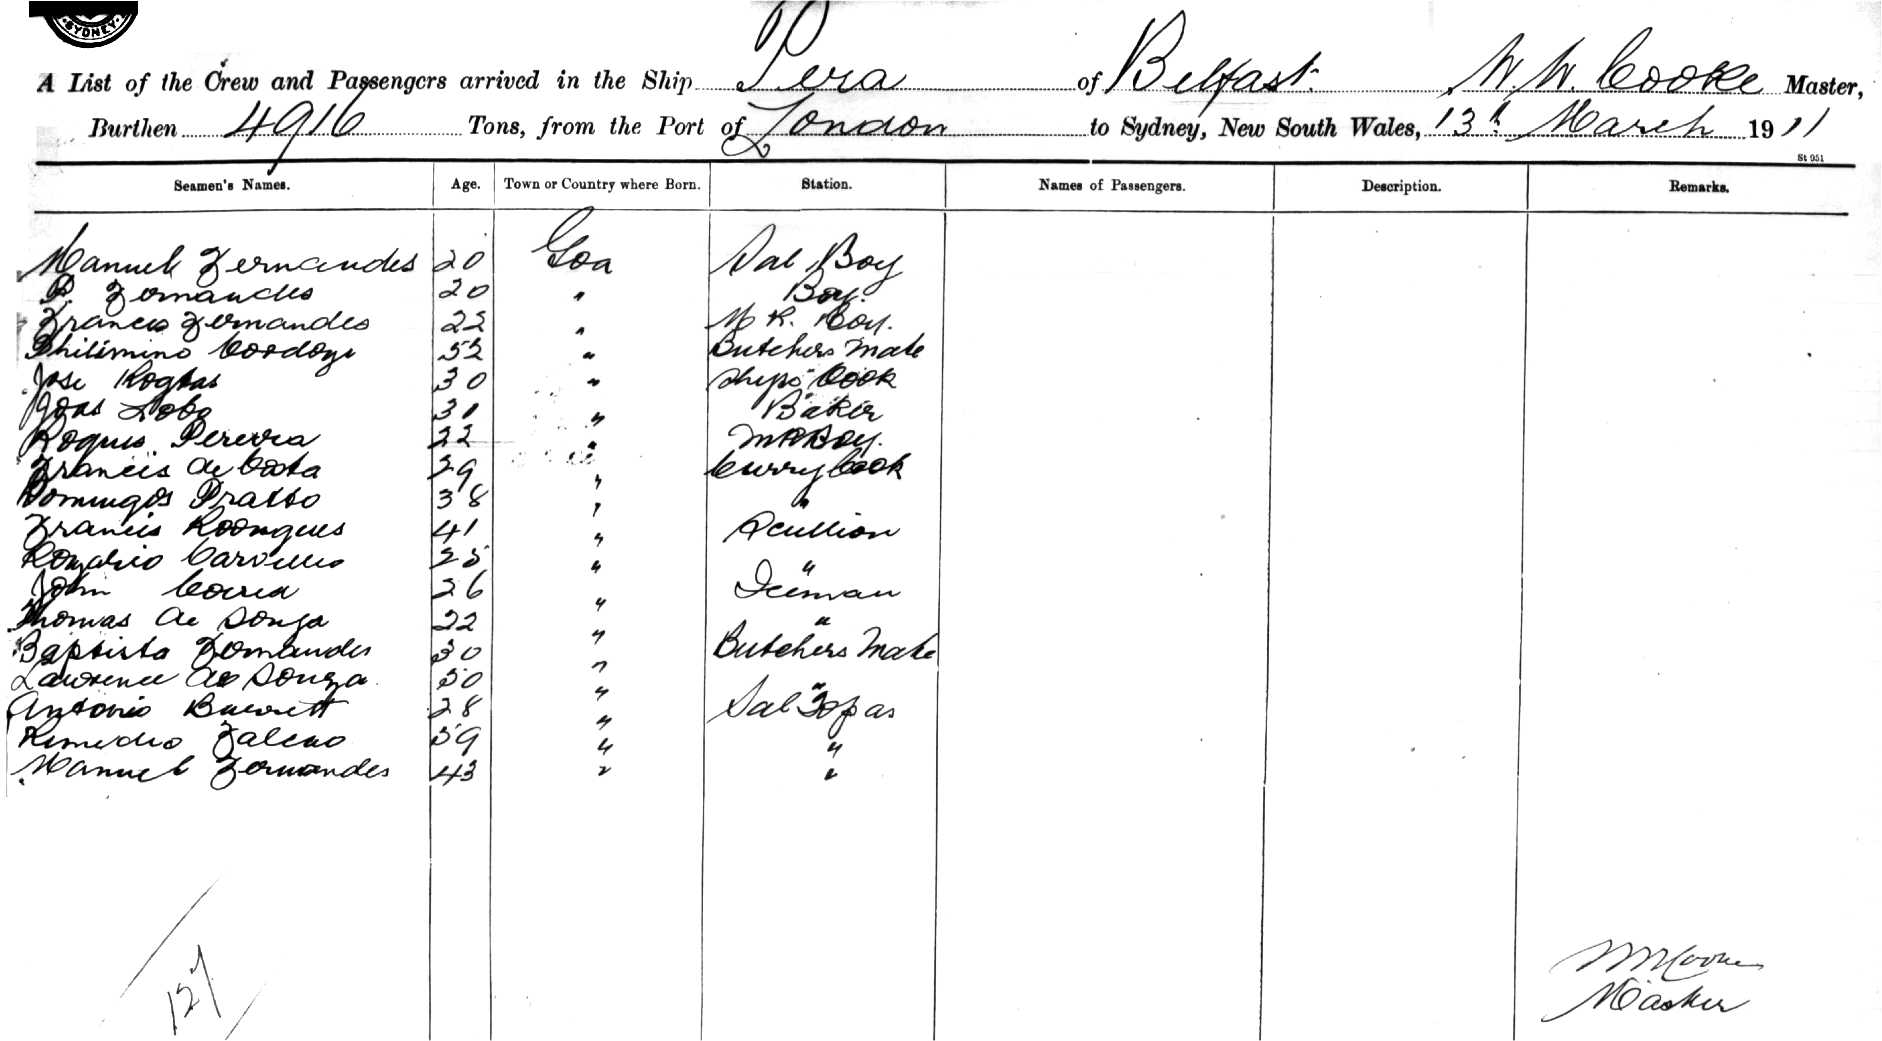 SYDNEY
A List of the Crew and Passengers arrived in the Ship Pera of Belfast W. W. Cooke Master,
Burthen 4916 Tons, from the Port of London to Sydney, New South Wales, 13th March 1911
St 951
Seamen's Names. Age. Town or Country where Born. Station. Names of Passengers. Description. Remarks.
Manuel Fernandes 20 Goa Sal Boy
P. Fernandes 20 " Boy.
Francis Fernandes 22 " M R. Boy.
Philimino 52 " Butchers Mate
Jose 30 " Ships Cook
Joas Lobo 31 " Baker
Roques Pereira 22 " M R Boy.
Francis de Costa 29 " Curry Cook
Domingos Pratto 38 " "
Francis Rodrigues 41 " Scullion
Rozario 25 " "
John 26 " Iceman
Thomas de Souza 22 " "
Baptista Fernandes 30 " Butchers Mate
Lawrence de Souza 50 " "
Antonio 28 " Sal Topas
Remedio 59 " "
Manuel Fernandes 43 " "
127
W W Cooke
Master